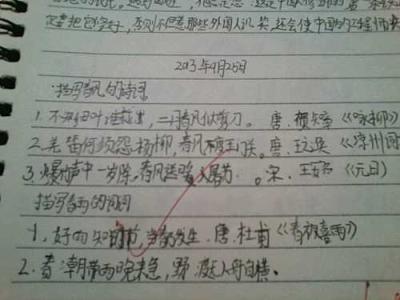 这是中国修筑的第一条铁
定要把它修好,否则不但惹那些外国人讥笑还会使中国的工程师失
2013年4月26日
描写春风的诗词
1. 不知细叶谁裁出,二月春风似剪刀。唐. 贺知章《咏柳》
2. 羌笛何须怨杨柳,春风不度玉门关。唐. 王之涣《凉州词
3. 爆竹声中一岁除,春风送暖入屠苏。宋. 王安石《元日》
描写春雨的诗词
1. 好雨知时节,当春乃发生. 唐. 杜甫《春夜喜雨》
2. 春潮带雨晚来急,野渡无人舟自横.